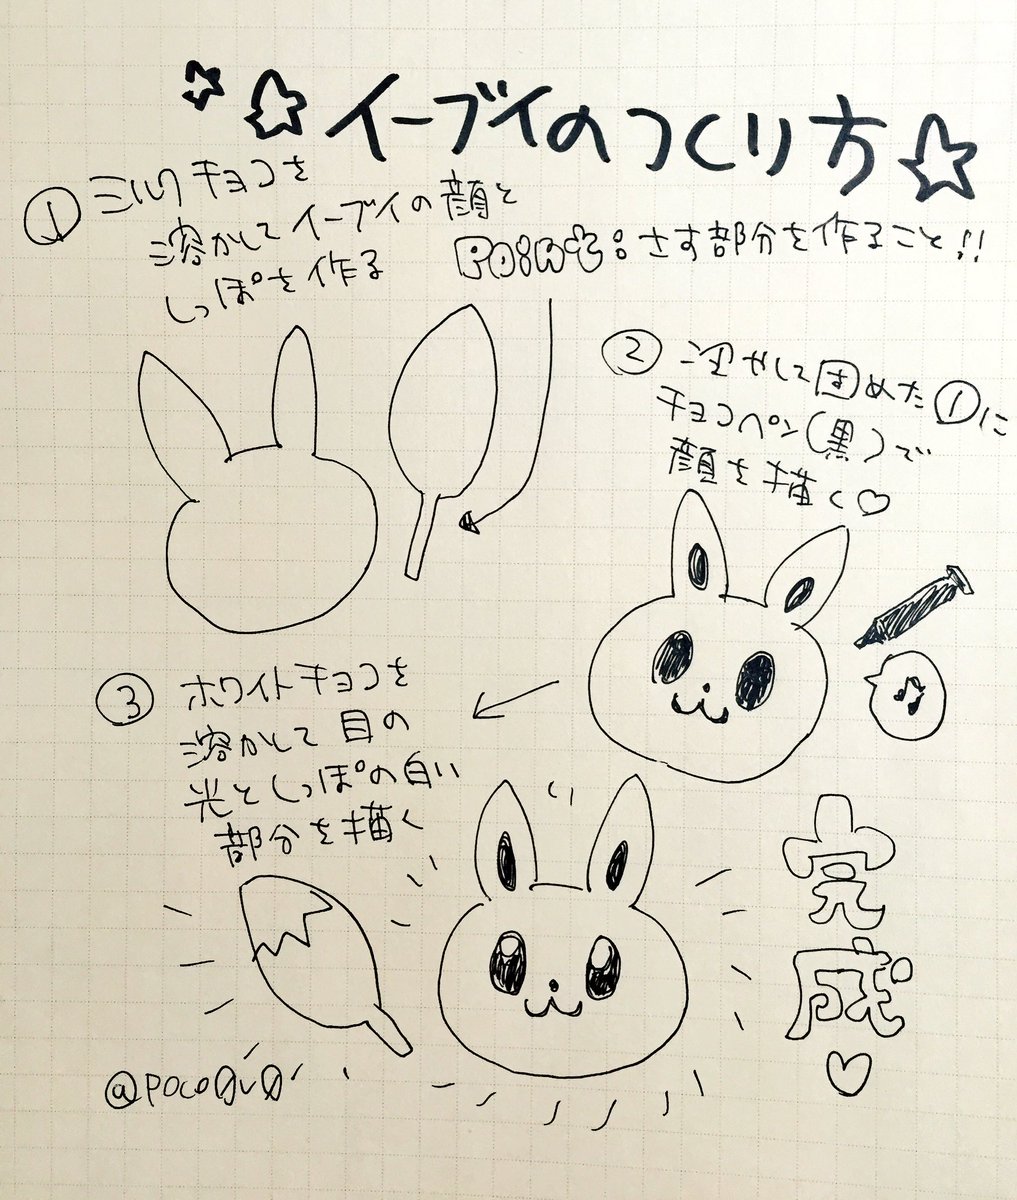 イーブイのつくり方
① ミルクチョコを
溶かしてイーブイの顔と
しっぽを作る
Point:さす部分を作ること!!
② 冷やして固めた①に
チョコペン(黒)で
顔を描く♡
③ ホワイトチョコを
溶かして目の
光としっぽの白い
部分を描く
完成♡
@poco0v0